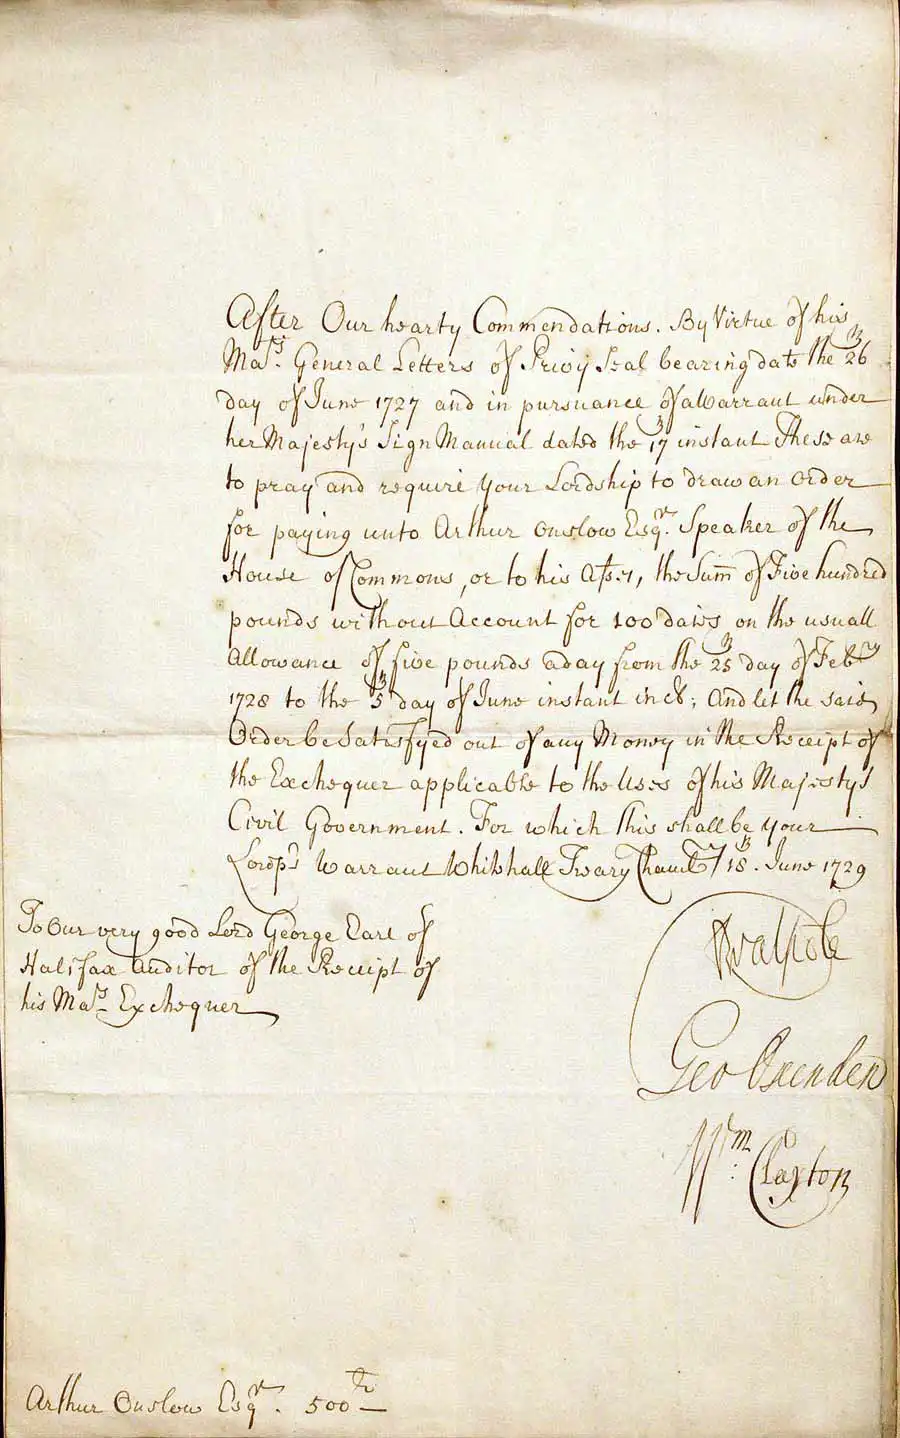 After Our hearty Commendations. By Virtue of his
Ma.ts General Letters of Privy Seal bearing date the 26th
day of June 1727 and in pursuance of a Warrant under
her Majesty's Sign Manual dated the 17th instant These are
to pray and require your Lordship to draw an Order
for paying unto Arthur Onslow Esq.r Speaker of the
House of Commons, or to his Ass.es, the Sum of Five hundred
pounds without Account for 100 daies on the usuall
Allowance of five pounds a day from the 25th day of Feb.ry
1728 to the 5th day of June instant incl; And let the said
Order be Satisfyed out of any Money in the Receipt of
the Exchequer applicable to the Uses of his Majesty's
Civil Government. For which this shall be your
Lordp's Warrant Whitehall Treary Chamb.r 18th. June 1729
To Our very good Lord George Earl of
Halifax Auditor of the Receipt of
his Ma.ts Exchequer
RWalpole
Geo Oxenden
Wm: Clayton
Arthur Onslow Esq.r. 500li